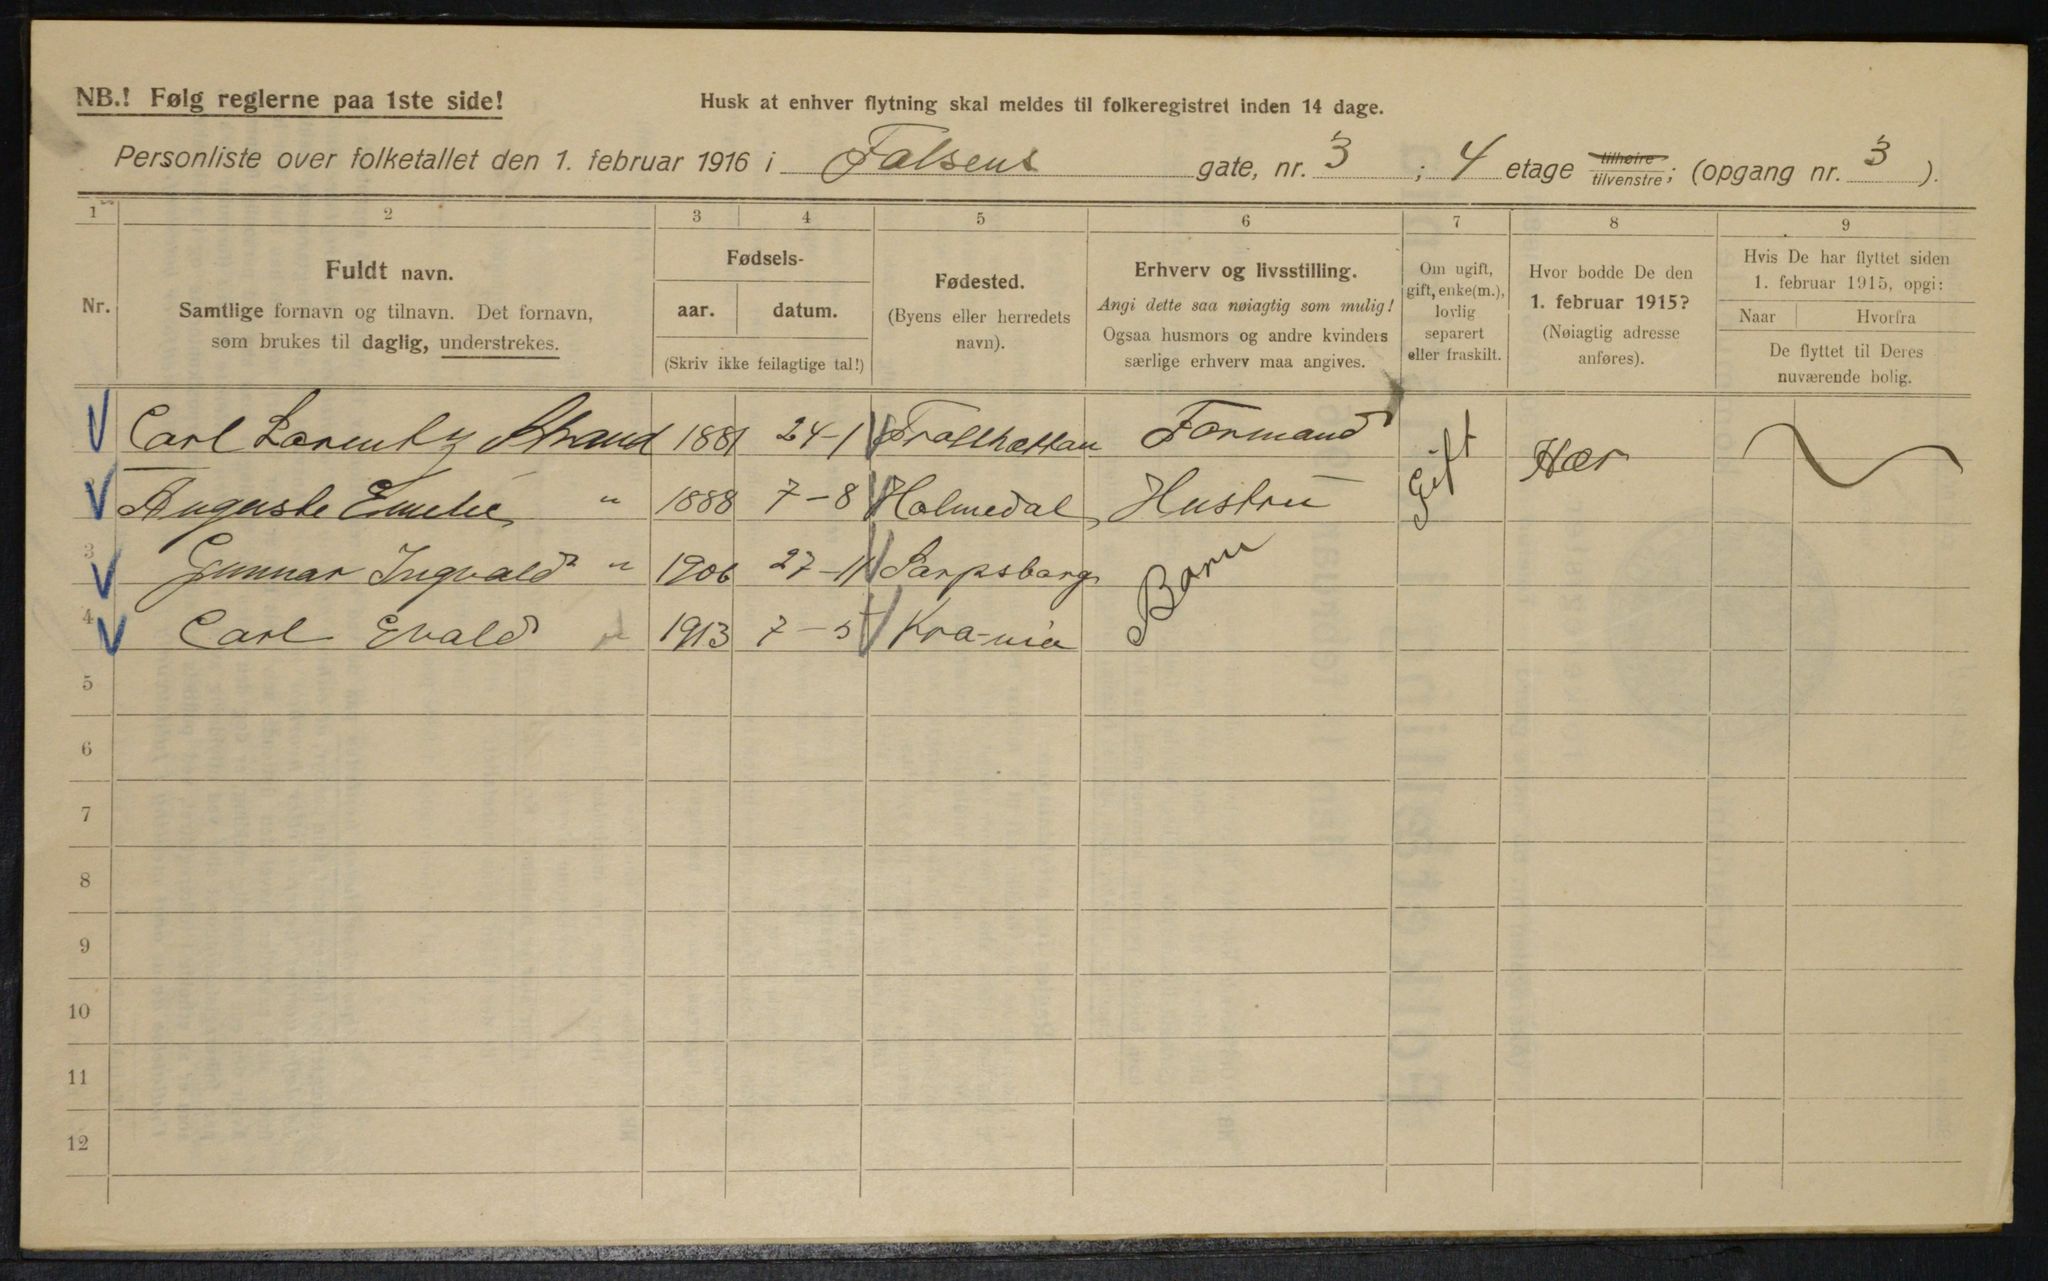 NB.! Følg reglerne paa 1ste side!
Husk at enhver flytning skal meldes til folkeregistret inden 14 dage.
Personliste over folketallet den 1. februar 1916 i Falsens gate, nr. 3 ; 4 etage tilhøire tilvenstre; (opgang nr. 3 ).
1 2 3 4 5 6 7 8 9
Nr.
Fuldt navn.
Samtlige fornavn og tilnavn. Det fornavn,
som brukes til daglig, understrekes.
Fødsels-
aar. datum.
(Skriv ikke feilagtige tal!)
Fødested.
(Byens eller herredets
navn).
Erhverv og livsstilling.
Angi dette saa nøiagtig som mulig!
Ogsaa husmors og andre kvinders
særlige erhverv maa angives.
Om ugift,
gift, enke(m.),
lovlig
separert
eller fraskilt.
Hvor bodde De den
1. februar 1915?
(Nøiagtig adresse
anføres).
Hvis De har flyttet siden
1. februar 1915, opgi:
Naar Hvorfra
De flyttet til Deres
nuværende bolig.
Carl Lorentz Strand 1881 24-1 Trollhættan Formand Gift Hær
Auguste Emelie " 1888 7-8 Holmedal Hustru
3 Gunnar Ingvald " 1906 27-11 Sarpsborg Barn
4 Carl Evald " 1913 7-5 Kra-nia
5
6
7
8
9
10
11
12